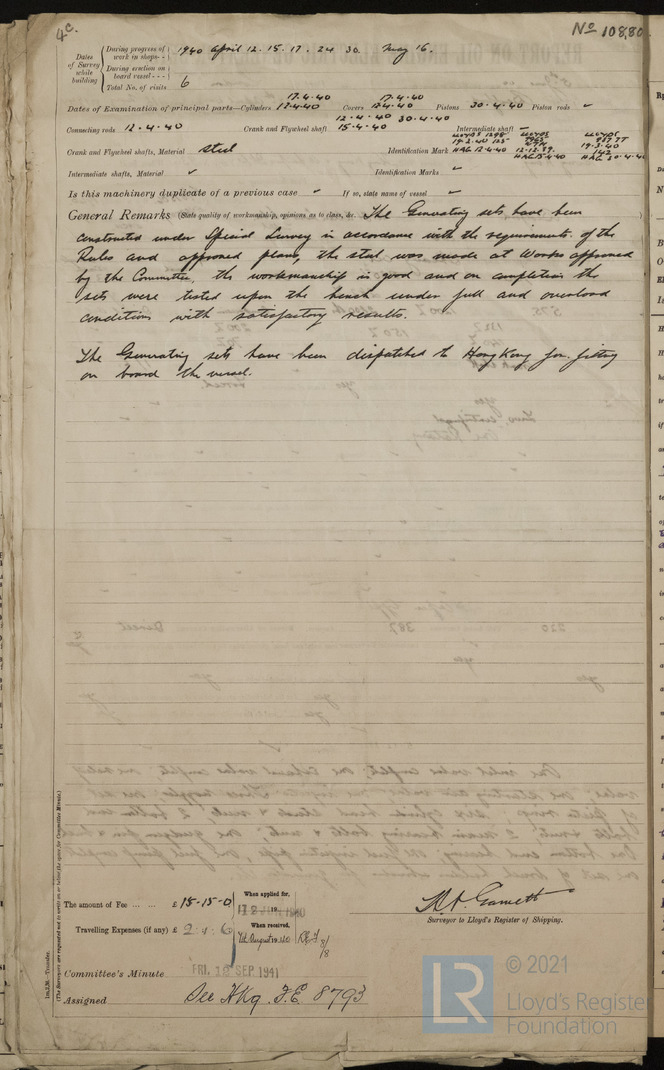 4c.
No 108,80
Dates of Survey while building
During progress of work in shops - - 1940 April 12. 15. 17. 24 30. May 16.
During erection on board vessel - - -
Total No. of visits 6
17.4.40 17.4.40
Dates of Examination of principal parts—Cylinders 12.4.40 Covers 12.4.40 Pistons 30.4.40 Piston rods ✓
12.4.40 30.4.40
Connecting rods 12.4.40 Crank and Flywheel shaft 15.4.40 Intermediate shaft ✓
Crank and Flywheel shafts, Material steel Identification Mark
LLOYDS 1298 19.2.40 HAG 12.4.40
LLOYDS 12.12.39. HAG 15.4.40
LLOYDS 19.3.40 142 HAG 30.4.40
Intermediate shafts, Material ✓ Identification Marks ✓
Is this machinery duplicate of a previous case ✓ If so, state name of vessel ✓
General Remarks (State quality of workmanship, opinions as to class, &c. The Generating sets have been
constructed under Special Survey in accordance with the requirements of the
Rules and approved plans, the steel was made at Works approved
by the Committee, the workmanship is good and on completion the
sets were tested upon the bench under full and overload
conditions with satisfactory results.
The Generating sets have been dispatched to Hong Kong for fitting
on board the vessel.
1m.2.39.—Transfer.
(The Surveyors are requested not to write on or below the space for Committee Minute.)
The amount of Fee ... ... £ 15-15-0
When applied for,
Travelling Expenses (if any) £ 2.4.6
When received,
7th August 1940
8/8
Surveyor to Lloyd's Register of Shipping.
Committee's Minute FRI. 12 SEP 1941
Assigned See HKg. F.E. 8793
LR
© 2021
Lloyd's Register
Foundation